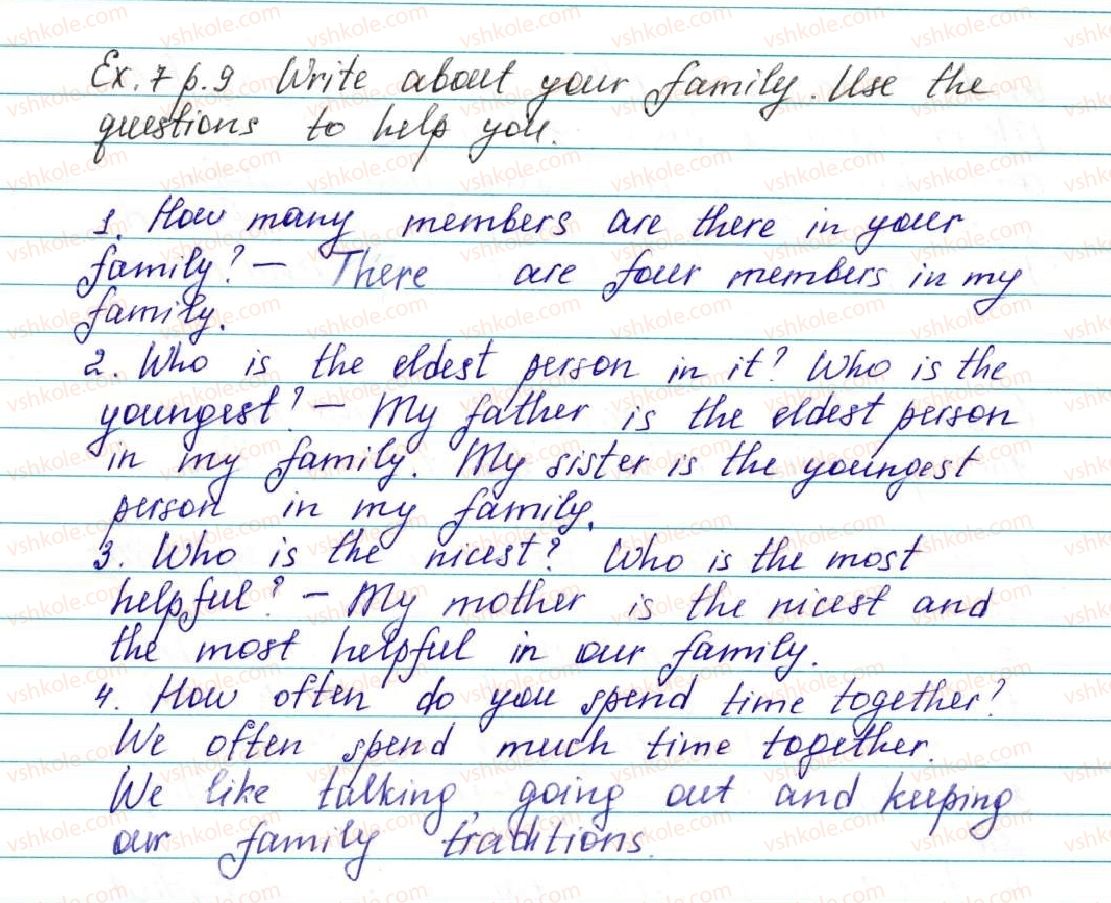 Ex. 7 p. 9 Write about your family. Use the
questions to help you.
1. How many members are there in your
family? — There are four members in my
family.
2. Who is the eldest person in it? Who is the
youngest? — My father is the eldest person
in my family. My sister is the youngest
person in my family.
3. Who is the nicest? Who is the most
helpful? — My mother is the nicest and
the most helpful in our family.
4. How often do you spend time together?
We often spend much time together.
We like talking, going out and keeping
our family traditions.